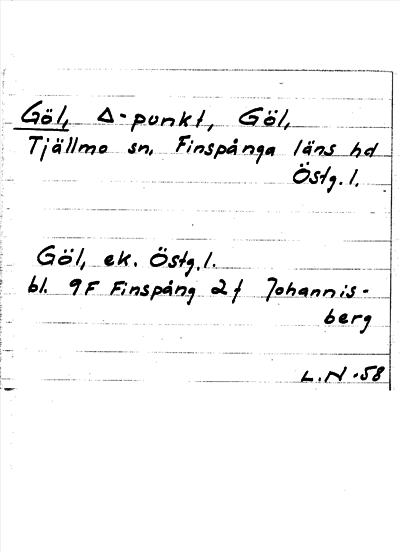 Göl, Δ-punkt, Göl,
Tjällmo sn, Finspånga läns hd
Östg.l.
Göl, ek. Östg.l.
bl. 9F Finspång 2f Johannis-
berg
L.N.-58